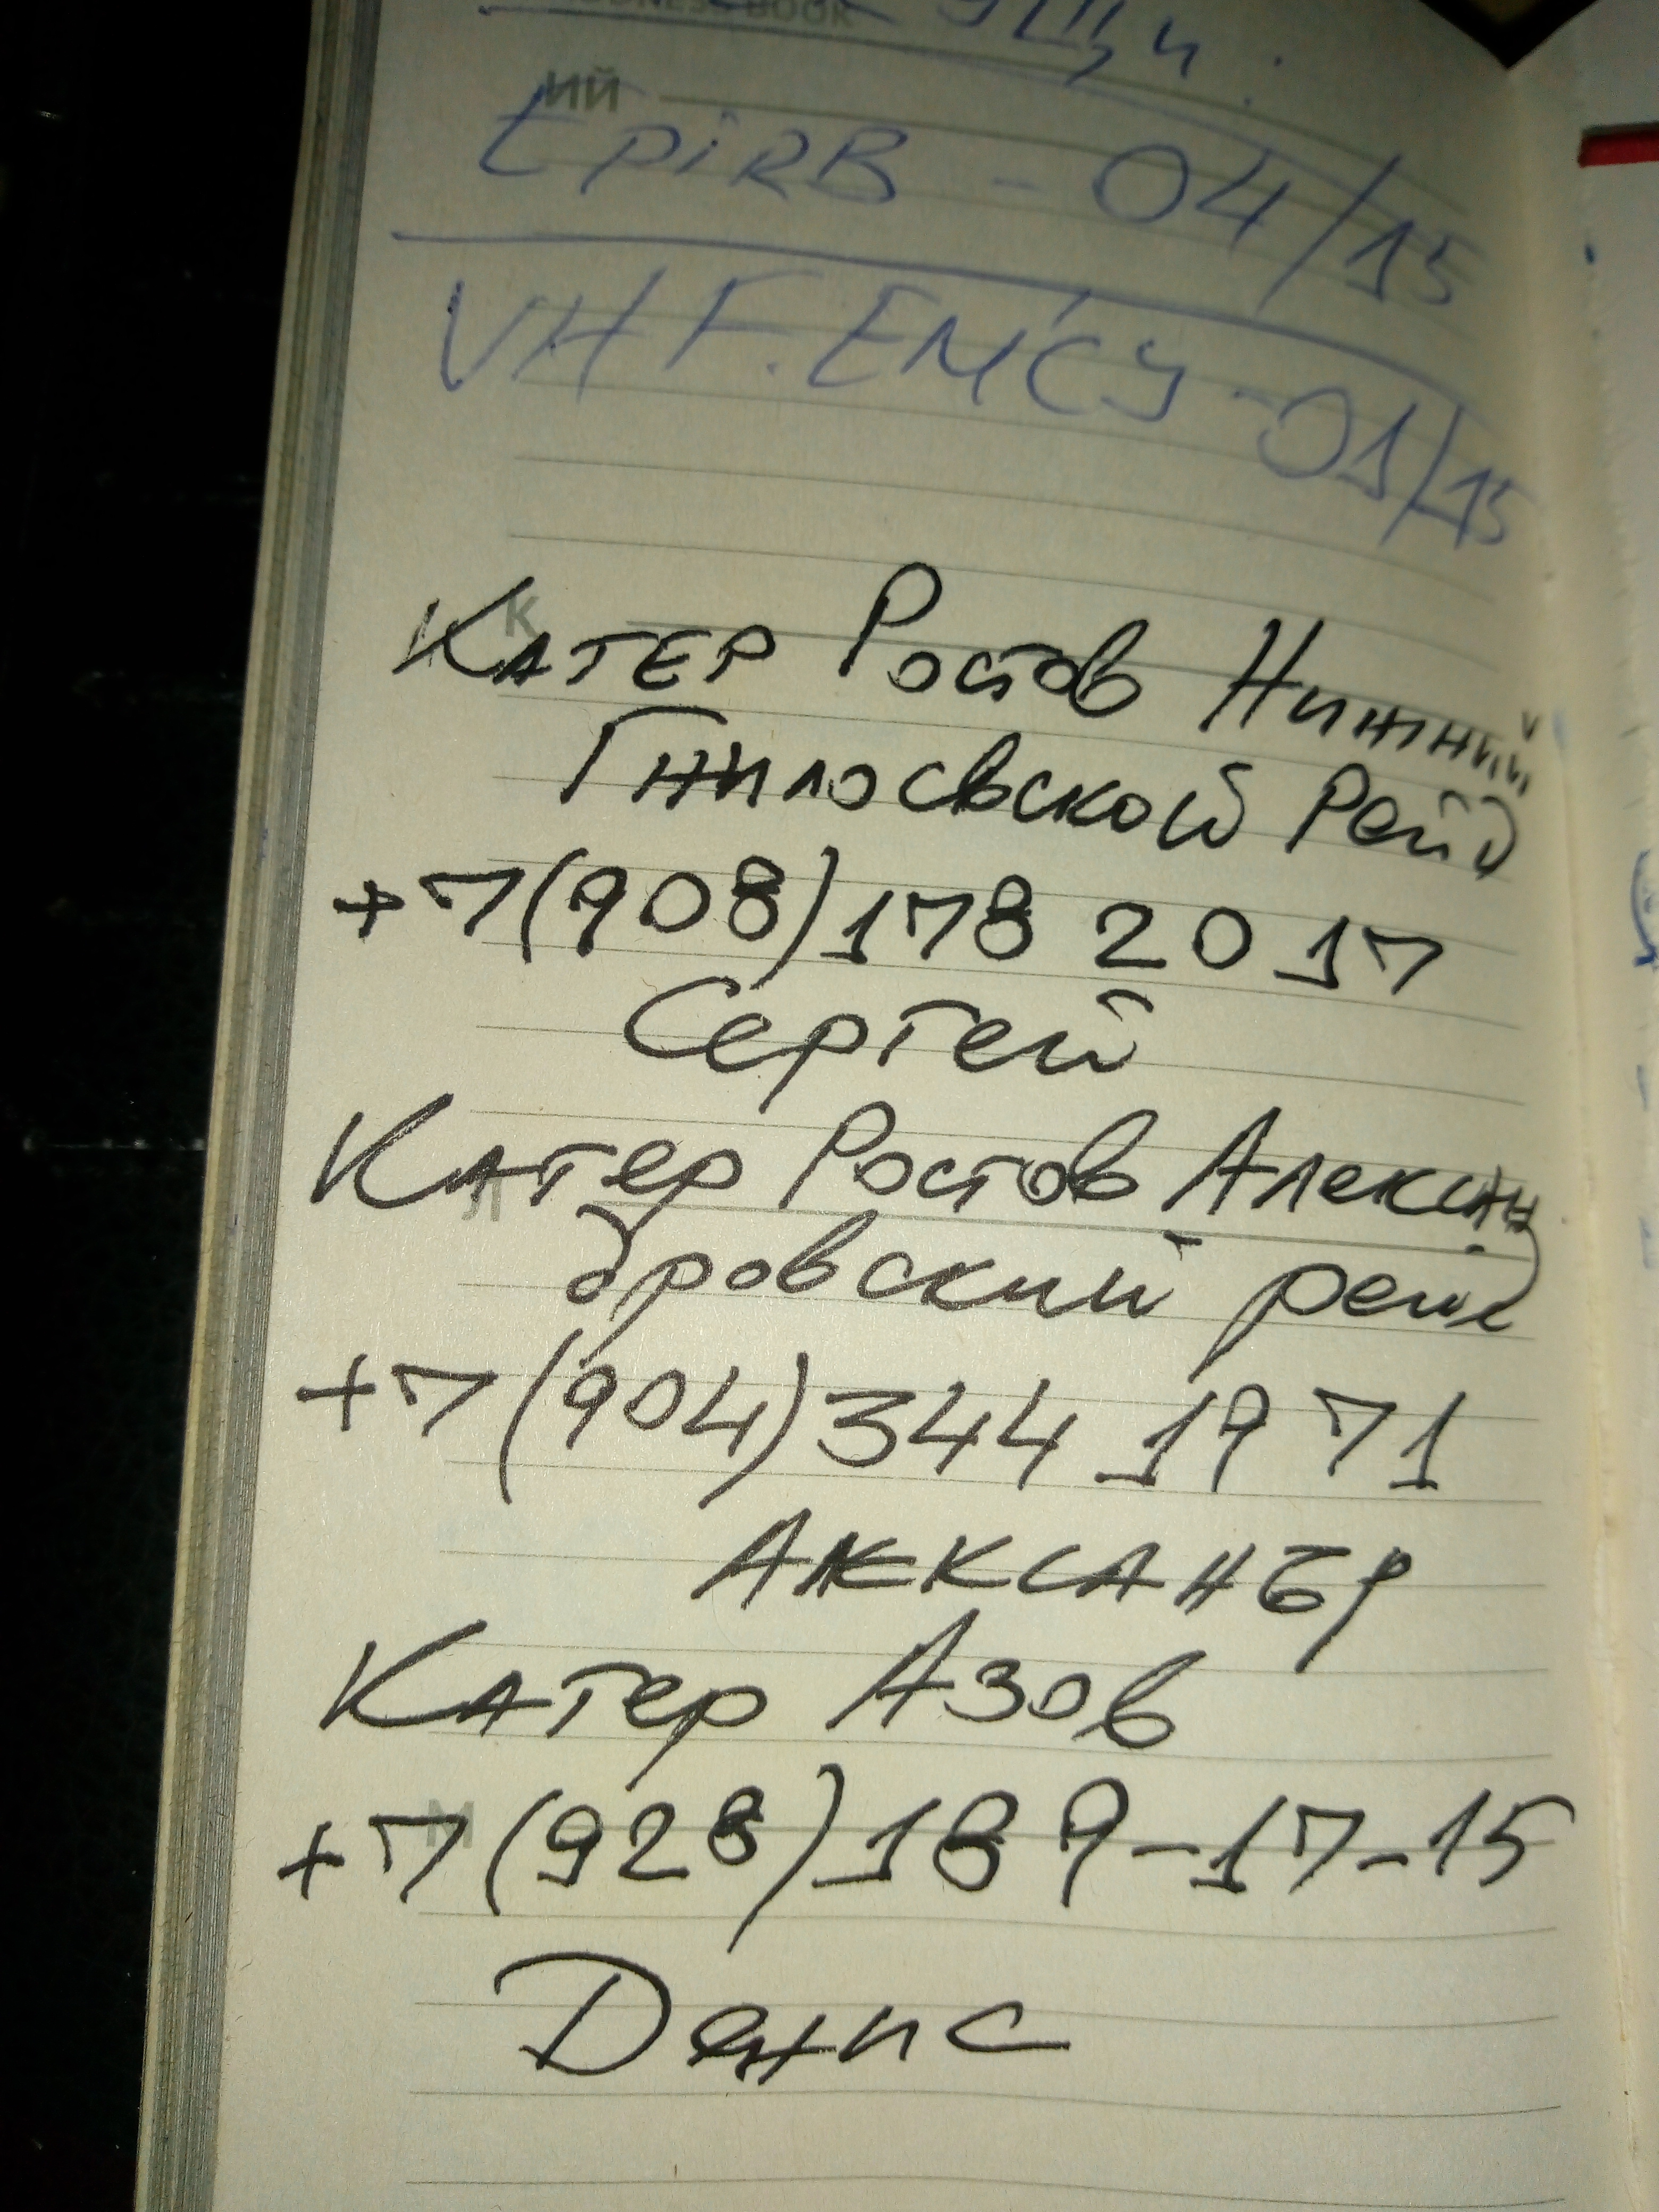 ИЙ
EpiRB - 04/15
VHF.EMCY - 01/15
К
Катер Ростов Нижний
Гнилосвской Рейд
+7(908)178 2017
Сергей
Катер Ростов Алексан
Л
дровский рейд
+7(904)344 1971
Александр
Катер Азов
М
+7(928)189-17-15
Денис